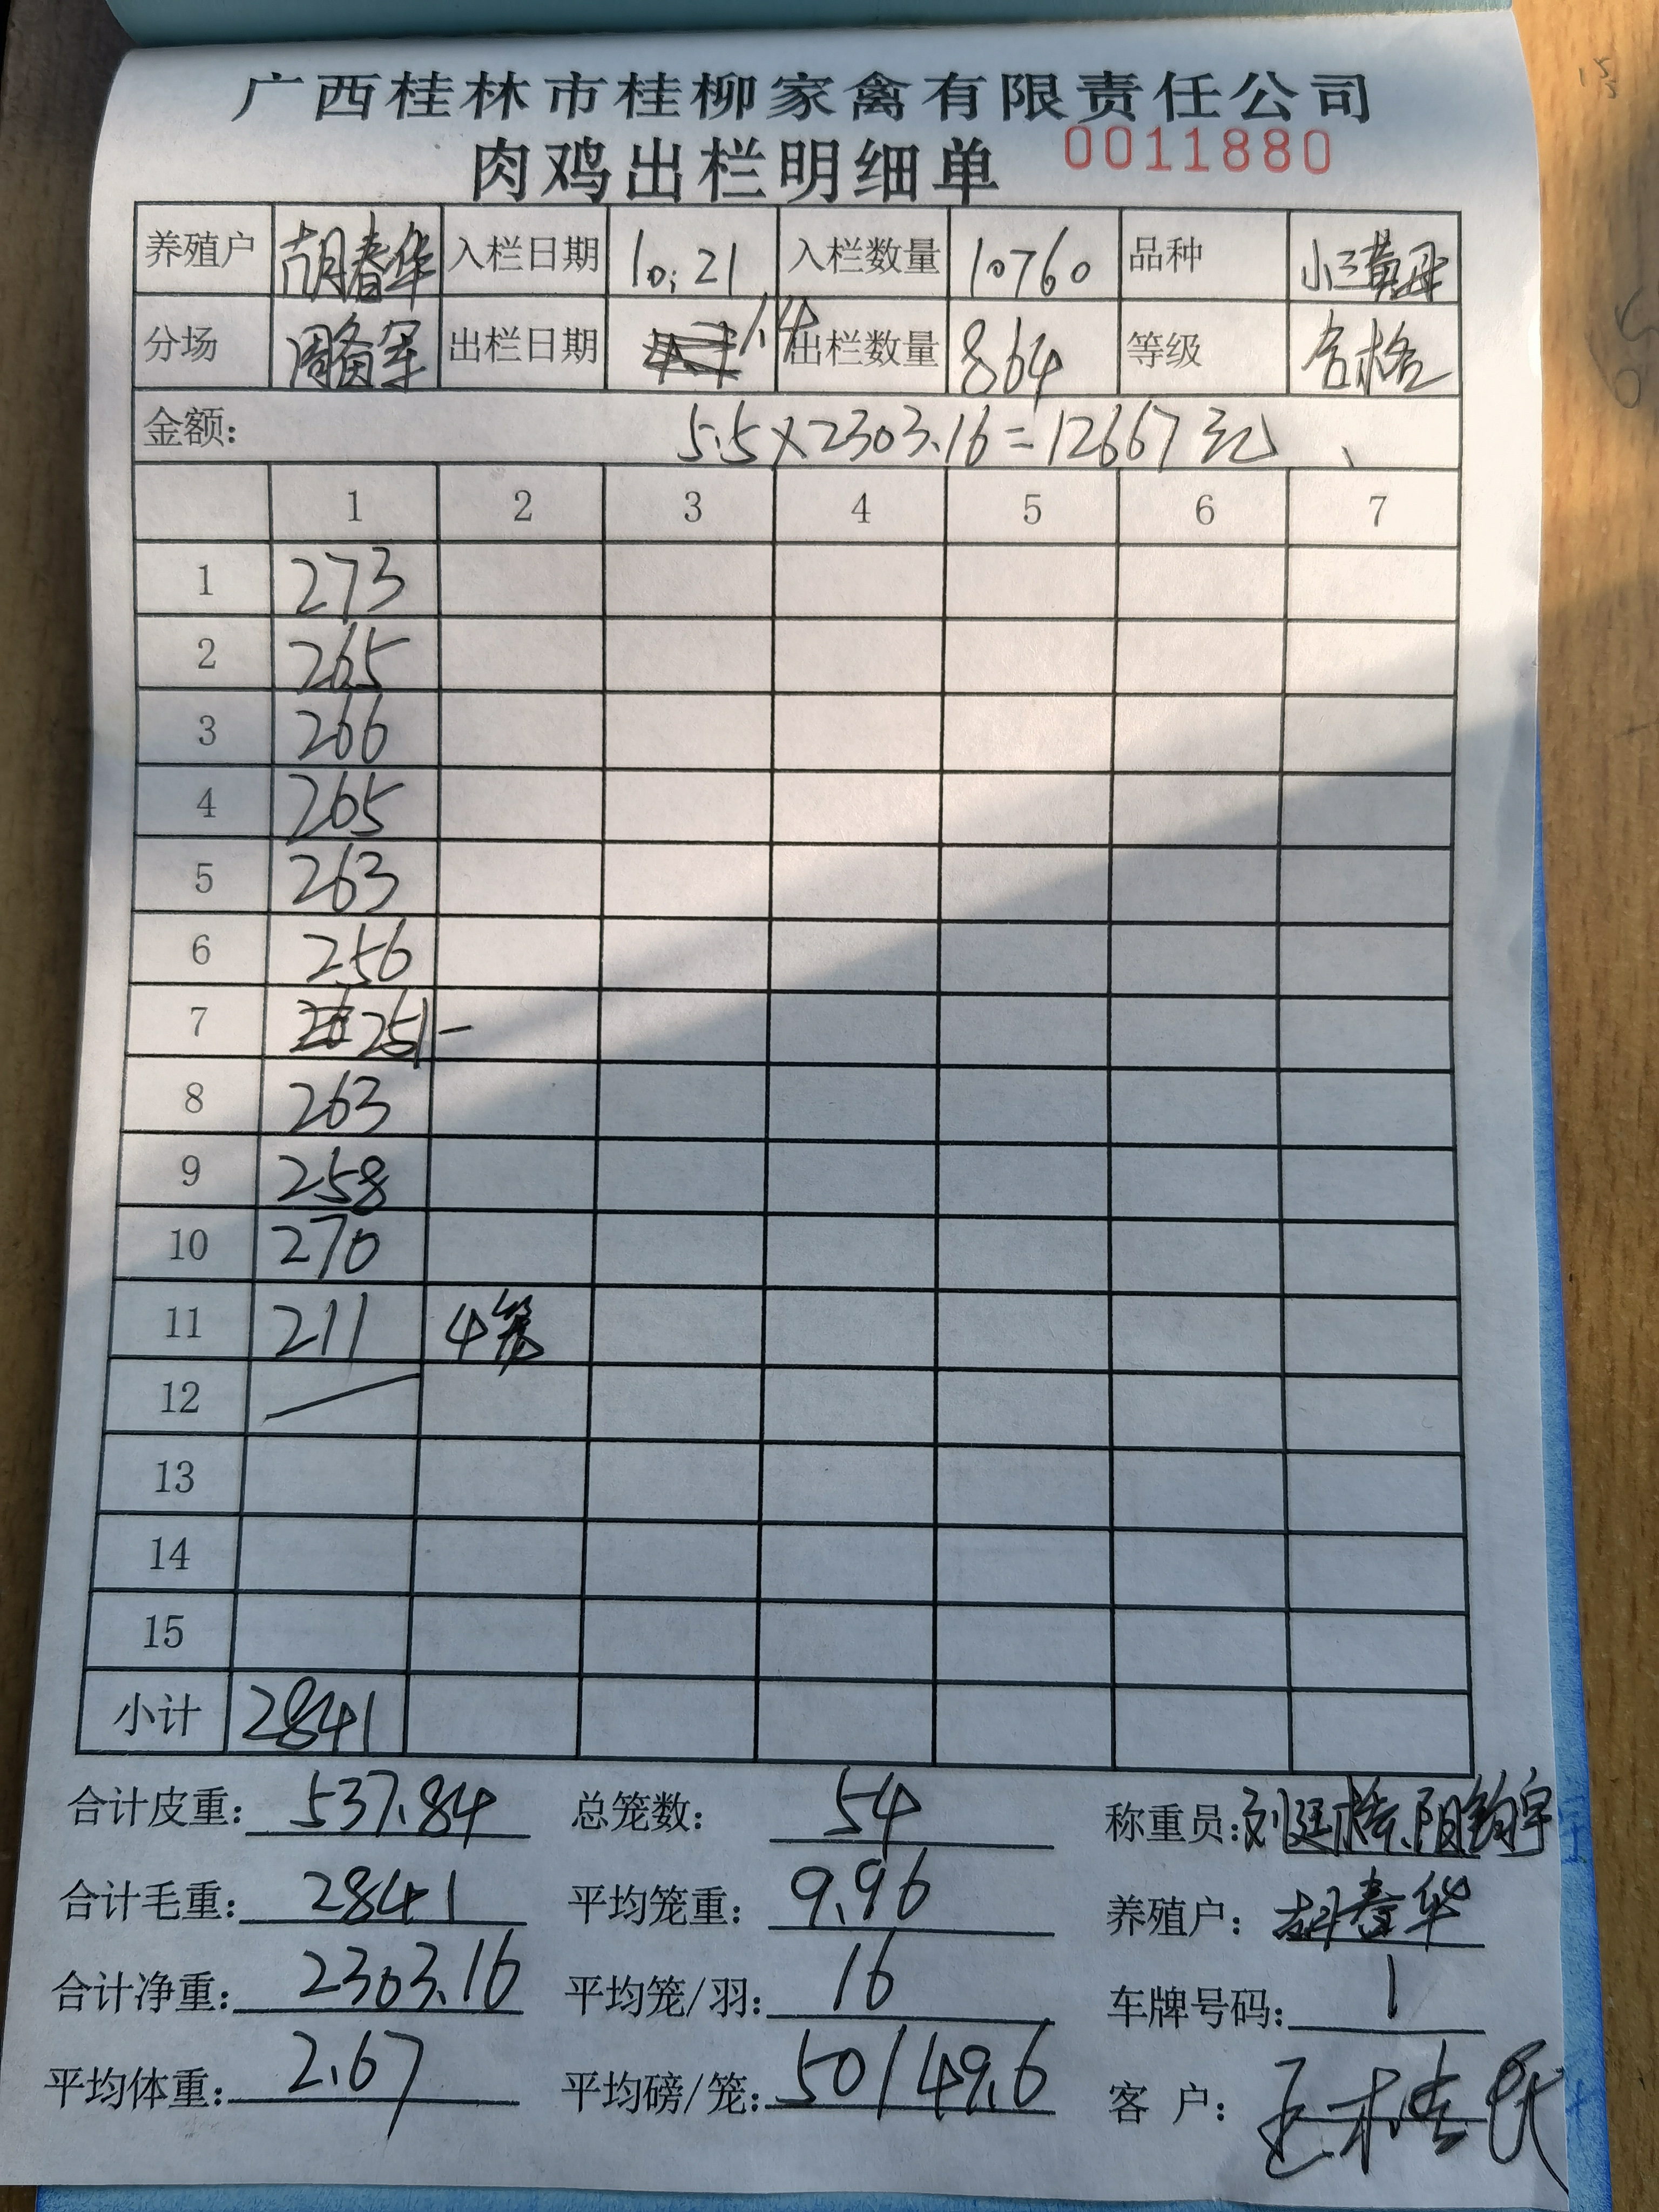 广西桂林市桂柳家禽有限责任公司
肉鸡出栏明细单 0011880
养殖户 胡春华 入栏日期 10.21 入栏数量 10760 品种 小三黄母
分场 周备军 出栏日期 1.4 出栏数量 864 等级 合格
金额: 5.5×2303.16=12667元
1 2 3 4 5 6 7
1 273
2 265
3 266
4 265
5 263
6 256
7 251
8 263
9 258
10 270
11 211 4笼
12
13
14
15
小计 2841
合计皮重: 537.84 总笼数: 54 称重员:
合计毛重: 2841 平均笼重: 9.96 养殖户: 胡春华
合计净重: 2303.16 平均笼/羽: 16 车牌号码: 1
平均体重: 2.67 平均磅/笼: 50/49.6 客 户: